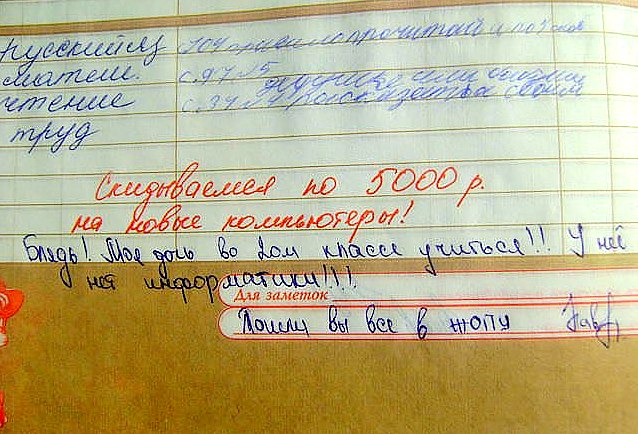 Русский яз 104 правило прочитай и
матем. с.97 №5
чтение с.34 №4
труд
Скидываемся по 5000 р.
на новые компьютеры!
Блядь! Моя дочь во 2ом классе учиться!! У неё
нет информатики!!!!
Для заметок
Пошли вы все в жопу